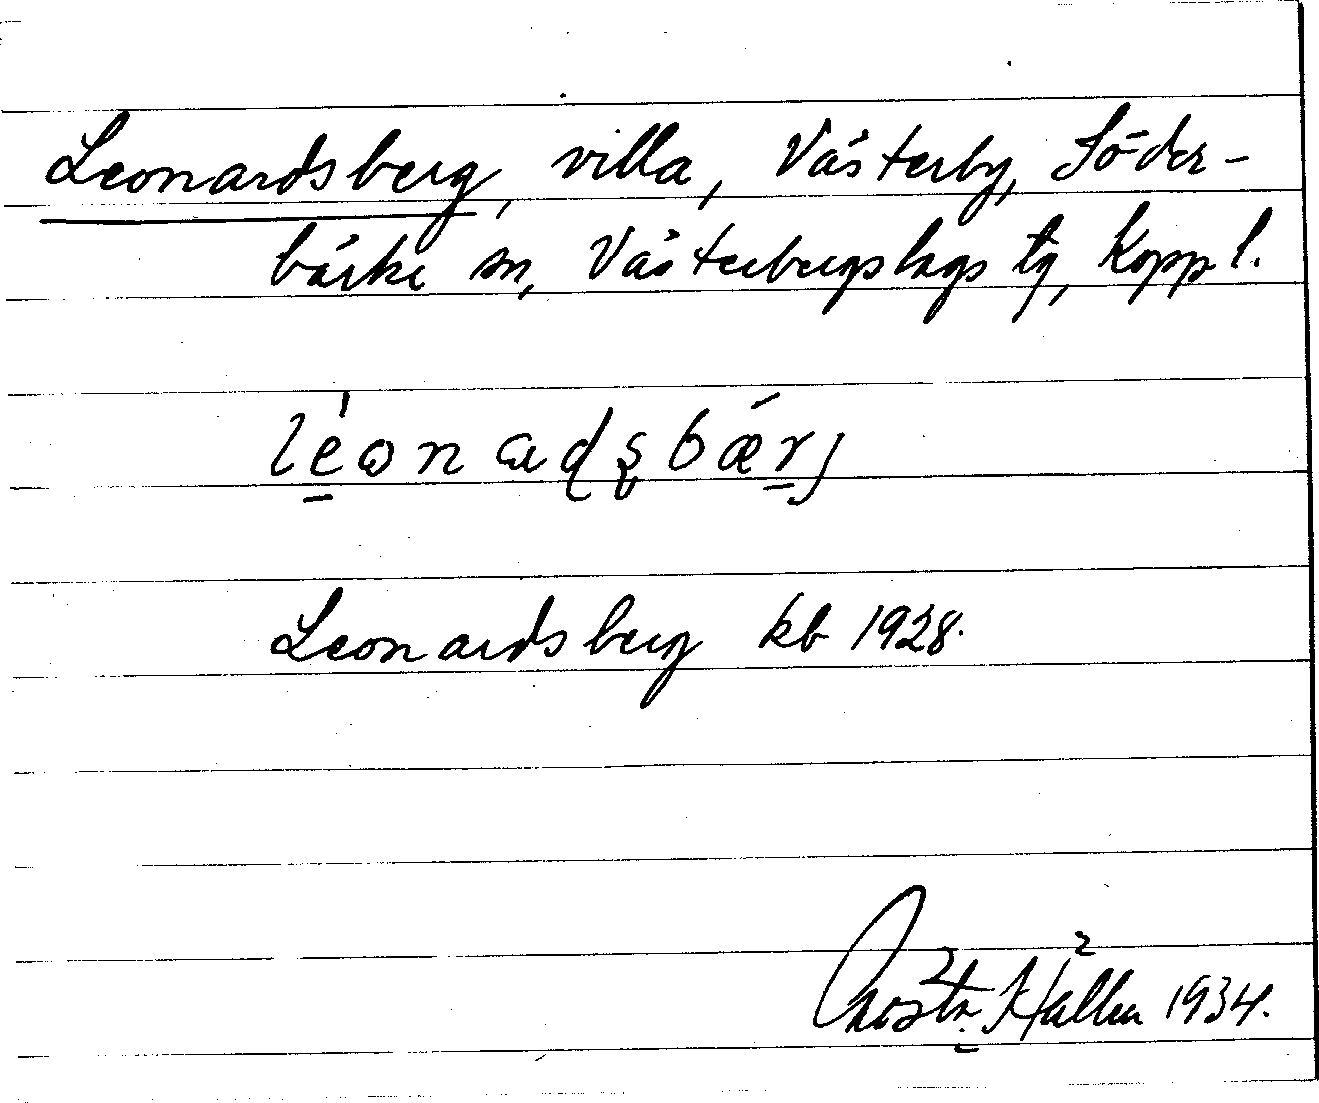 Leonardsberg, villa, Västerby, Söder-
bärke sn, Västerbergslags tg, Kopp l.
lé̱ωnaɖʂbæ̀ṟj
Leonardsberg kb 1928.
Gösta Källen 1934.